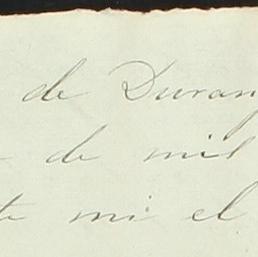 de Duran
de mil
te mi el